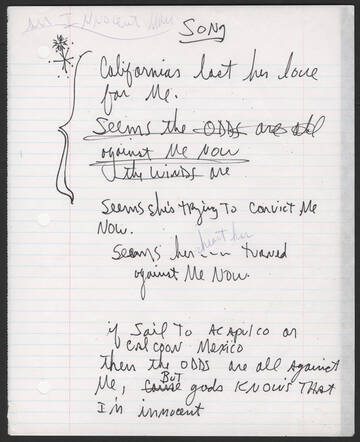 Innocent Man
SONG
California's lost her love
for Me.
Seems the ODDS are all
against Me Now
the WINDS are
Seems she's trying To convict Me
Now.
heart her
Seems her turned
against Me Now.
if Sail To ACAPULCO or
Mexico
then the ODDS are all Against
BUT
Me, Cause gods KNOWS THAT
I'm innocent